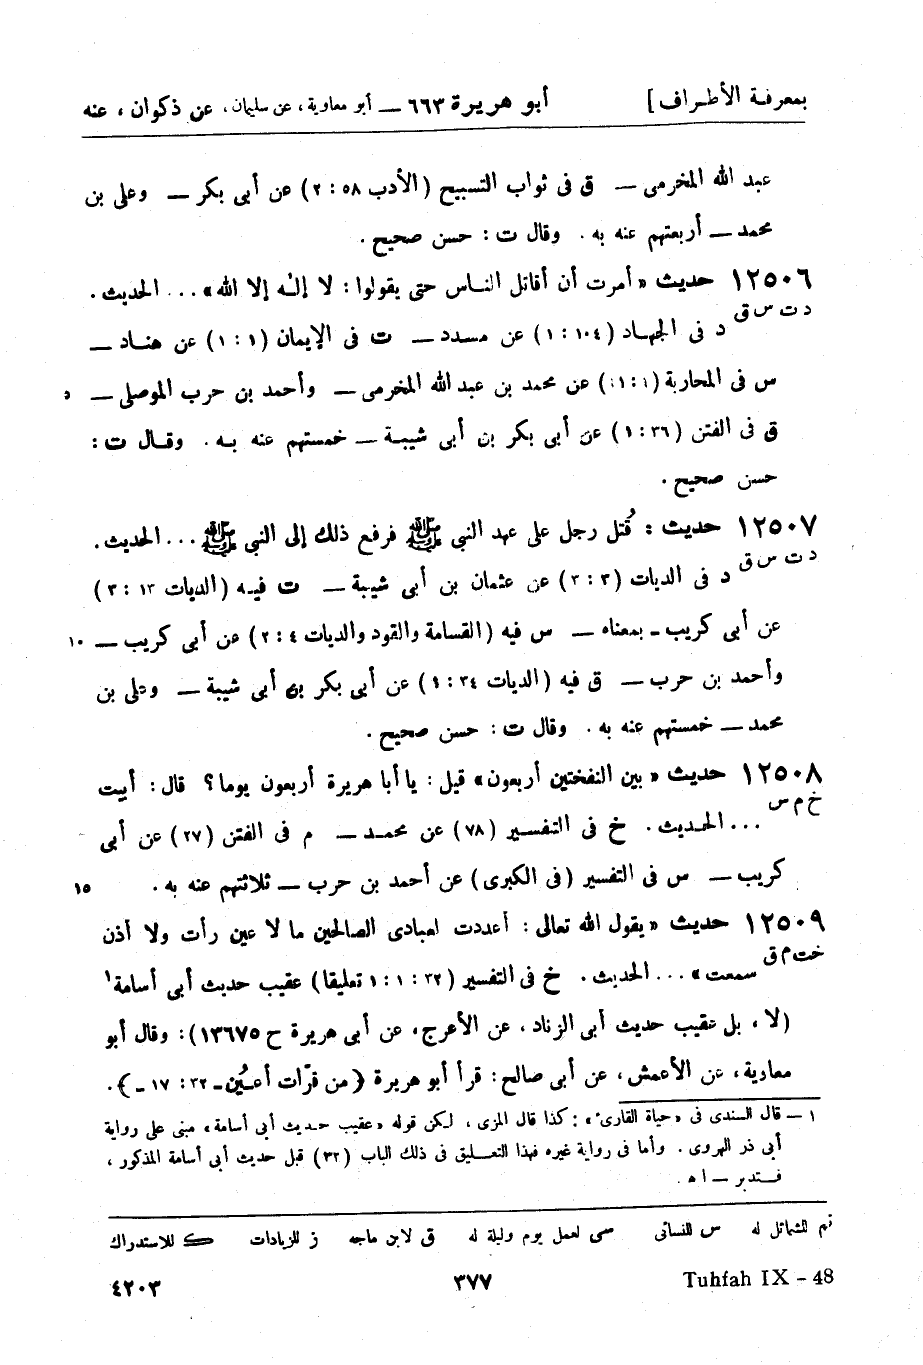 بمعرفة الأطراف] أبو هريرة ٦٦٣ — أبو معاوية، عن سليمان، عن ذكوان، عنه
عبد الله المخرمى — ق فى ثواب التسبيح (الأدب ٥٨ : ٢) عن أبى بكر — وعلى بن
محمد — أربعتهم عنه به. وقال ت: حسن صحيح.
١٢٥٠٦ حديث «أمرت أن أقاتل الناس حتى يقولوا: لا إلٰه إلا الله»... الحديث.
د ت س ق د فى الجهاد (١٠٤ : ١) عن مسدد — ت فى الإيمان (١ : ١) عن هناد —
س فى المحاربة (١ : ١) عن محمد بن عبد الله المخرمى — وأحمد بن حرب الموصلى —
ق فى الفتن (٣٦ : ١) عن أبى بكر بن أبى شيبة — خمستهم عنه به. وقال ت:
حسن صحيح.
١٢٥٠٧ حديث: قُتل رجل على عهد النبى ﷺ فرفع ذلك إلى النبى ﷺ... الحديث.
د ت س ق د فى الديات (٣ : ٣) عن عثمان بن أبى شيبة — ت فيه (الديات ١٣ : ٣)
عن أبى كريب - بمعناه — س فيه (القسامة والقود والديات ٤ : ٢) عن أبى كريب — ١٠
وأحمد بن حرب — ق فيه (الديات ٣٤ : ١) عن أبى بكر بن أبى شيبة — وعلى بن
محمد — خمستهم عنه به. وقال ت: حسن صحيح.
١٢٥٠٨ حديث «بين النفختين أربعون» قيل: يا أبا هريرة أربعون يوما؟ قال: أبيت
خ م س ... الحديث. خ فى التفسير (٧٨) عن محمد — م فى الفتن (٢٧) عن أبى
كريب — س فى التفسير (فى الكبرى) عن أحمد بن حرب — ثلاثتهم عنه به. ١٥
١٢٥٠٩ حديث «يقول الله تعالى: أعددت لعبادى الصالحين ما لا عين رأت ولا أذن
خت م ق سمعت»... الحديث. خ فى التفسير (٣٢ : ١ : ١ تعليقا) عقيب حديث أبى أسامة¹
(لا، بل عقيب حديث أبى الزناد، عن الأعرج، عن أبى هريرة ح ١٣٦٧٥): وقال أبو
معاوية، عن الأعمش، عن أبى صالح: قرأ أبو هريرة (من قرّات أعيُن - ٣٢ : ١٧ -).
١ — قال السندى فى «حياة القارئ»: كذا قال المزى، لكن قوله «عقيب حديث أبى أسامة» مبنى على رواية
أبى ذر الهروى. وأما فى رواية غيره فهذا التعليق فى ذلك الباب (٣٢) قبل حديث أبى أسامة المذكور،
فتدبر — اﻫ.
تم للشمائل له س للنسائى سى لعمل يوم وليلة له ق لابن ماجه ز للزيادات ك للاستدراك
Tuhfah IX - 48 ٣٧٧ ٤٢٠٣